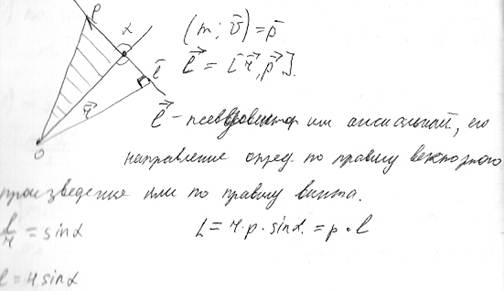 P
α
l
r⃗
O
(m; v̄) = p̄
L⃗ = [r⃗, p⃗].
L⃗ - псевдовектор или аксиальный, его
направление опред. по правилу векторного
произведение или по правилу винта.
l/r = sinα
L = r · p · sinα = p · l
l = r sinα